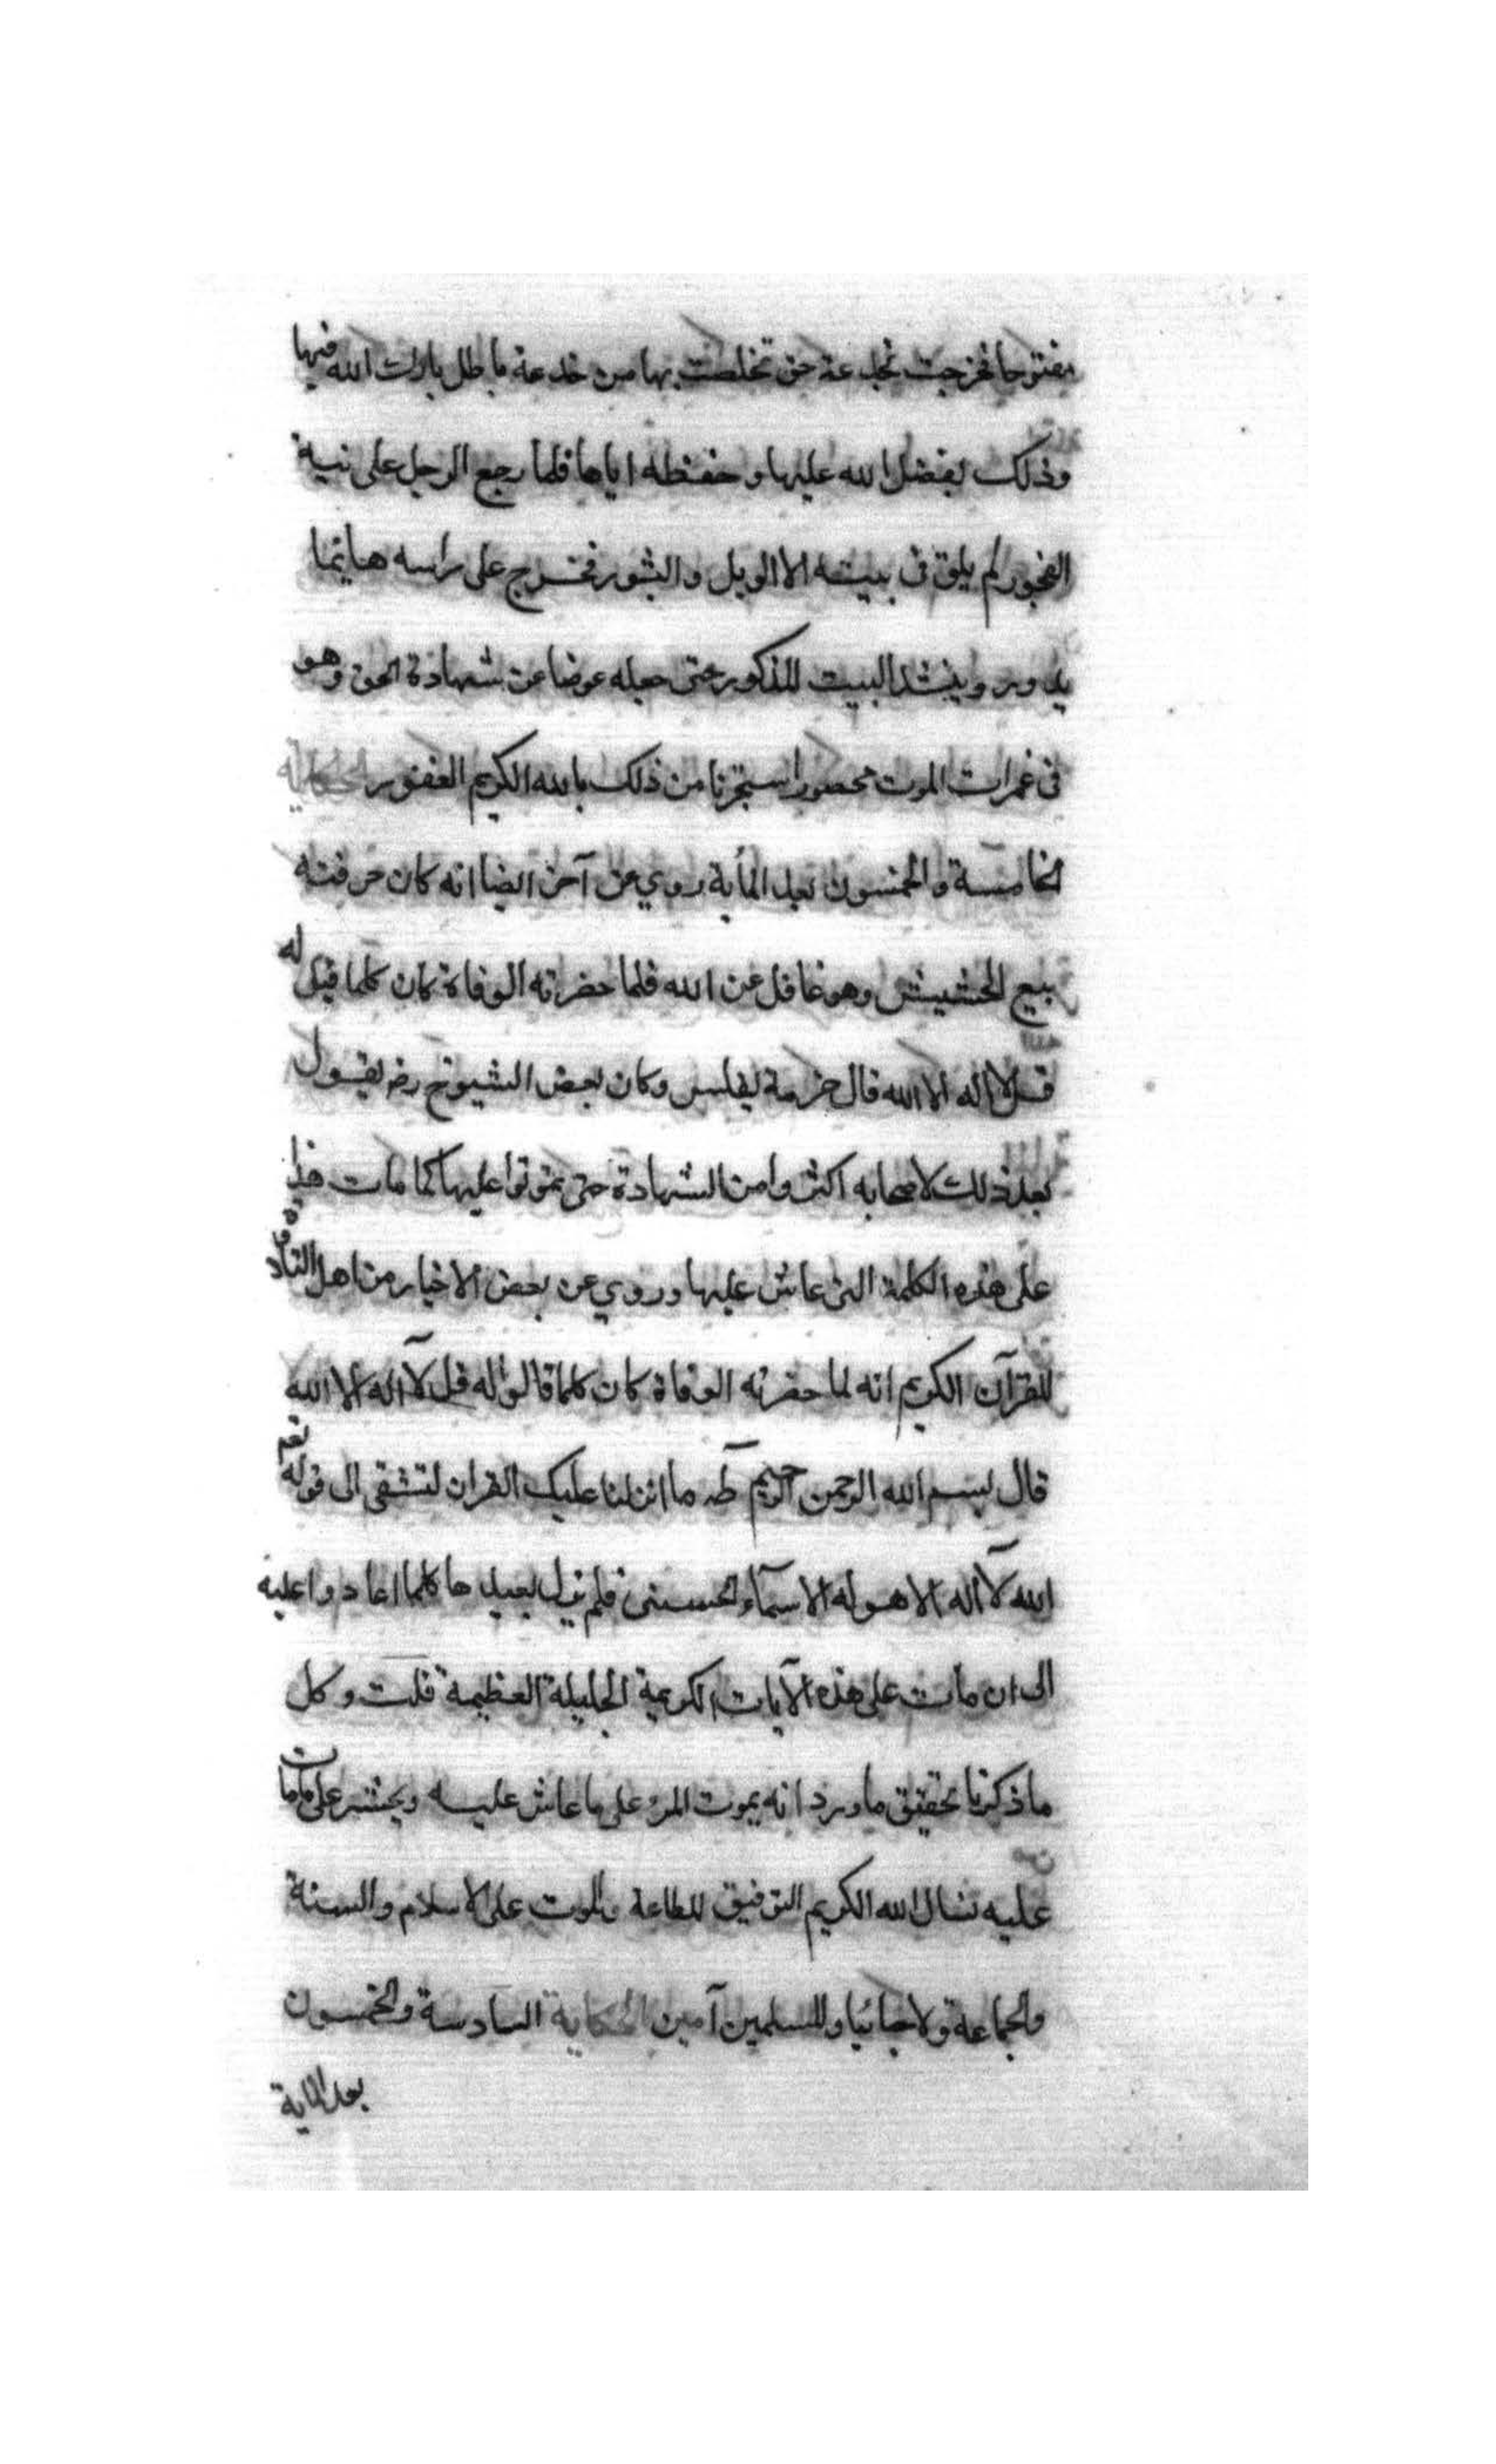 مفتوحا فخرجت بخدعة حق تخلصت بها من خدعة باطل بارك الله فيها
وذلك بفضل الله عليها وحفظه اياها فلما رجع الرجل على نية
الفجور لم يلق في بيته الا الويل والثبور فخرج على راسه هايما
يدور وينشد البيت المذكور حتى جعله عوضا عن شهادة الحق وهو
في غمرات الموت محصور استجرنا من ذلك بالله الكريم الغفور الحكاية
الخامسة والخمسون بعد المأية روي عن آخر ايضا انه كان حرفته
بيع الحشيش وهو غافل عن الله فلما حضرته الوفاة كان كلما قيل له
قل لا اله الا الله قال حزمة بفلس وكان بعض الشيوخ رضه يقول
بعد ذلك لاصحابه اكثروا من الشهادة حتى تموتوا عليها كما مات هذا
على هذه الكلمة التي عاش عليها وروي عن بعض الاخيار من اهل التلاوة
للقرآن الكريم انه لما حضرته الوفاة كان كلما قالوا له قل لآ اله الا الله
قال بسم الله الرحمن الرحيم طه ما انزلنا عليك القران لتشقى الى قوله تعم
الله لآ اله الا هو له الاسمآء الحسنى فلم يزل يعيدها كلما اعادوا عليه
الى ان مات على هذه الآيات الكريمة الجليلة العظيمة قلت وكل
ما ذكرنا تحقيق ما ورد انه يموت المرء على ما عاش عليه ويحشر على ما مات
عليه نسال الله الكريم التوفيق للطاعة والموت على الاسلام والسنة
والجماعة ولاحبائنا وللمسلمين آمين الحكاية السادسة والخمسون
بعد الماية